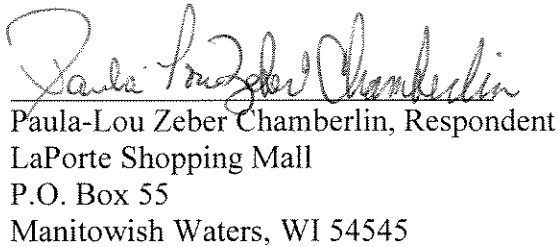 Paula Lou Zeber Chamberlin
Paula-Lou Zeber Chamberlin, Respondent
LaPorte Shopping Mall
P.O. Box 55
Manitowish Waters, WI 54545